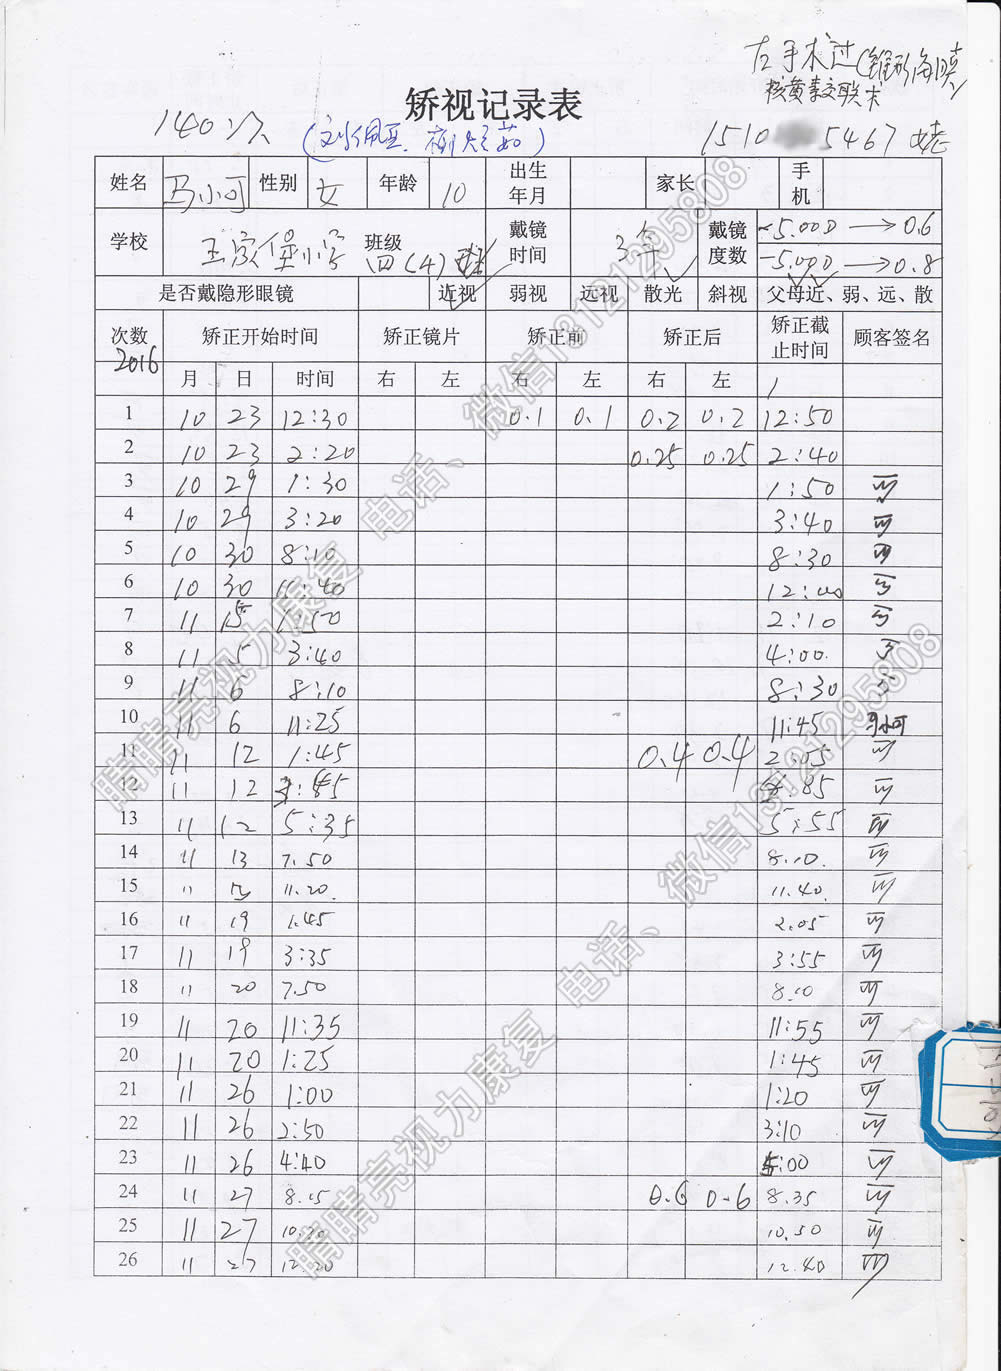 左手术过(锥形角膜)
核黄素交联术
矫视记录表
140次
1510 5467 姥
姓名 马小可 性别 女 年龄 10 出生年月 家长 手机
学校 王家堡小学 班级 四(4)班 戴镜时间 3年 戴镜度数 -5.00D → 0.6
-5.00D → 0.8
是否戴隐形眼镜 近视 弱视 远视 散光 斜视 父母近、弱、远、散
次数 矫正开始时间 矫正镜片 矫正前 矫正后 矫正截止时间 顾客签名
2016
月 日 时间 右 左 右 左 右 左
1 10 23 12:30 0.1 0.1 0.2 0.2 12:50
2 10 23 2:20 0.25 0.25 2:40
3 10 29 1:30 1:50
4 10 29 3:20 3:40
5 10 30 8:10 8:30
6 10 30 11:40 12:00
7 11 5 1:50 2:10
8 11 5 3:40 4:00
9 11 6 8:10 8:30
10 11 6 11:25 11:45 马小可
11 11 12 1:45 0.4 0.4 2:05
12 11 12
13 11 12 5:35 5:55
14 11 13 7.50 8.10
15 11 13 11.20 11.40
16 11 19 1:45 2.05
17 11 19 3:35 3:55
18 11 20 7.50 8.10
19 11 20 11:35 11:55
20 11 20 1:25 1:45
21 11 26 1:00 1:20
22 11 26 2:50 3:10
23 11 26 4:40 5:00
24 11 27 8.15 0.6 0.6 8.35
25 11 27 10.30 10.50
26 11 27 12.20 12.40
睛睛亮视力康复 电话、微信13121295808
睛睛亮视力康复 电话、微信13121295808